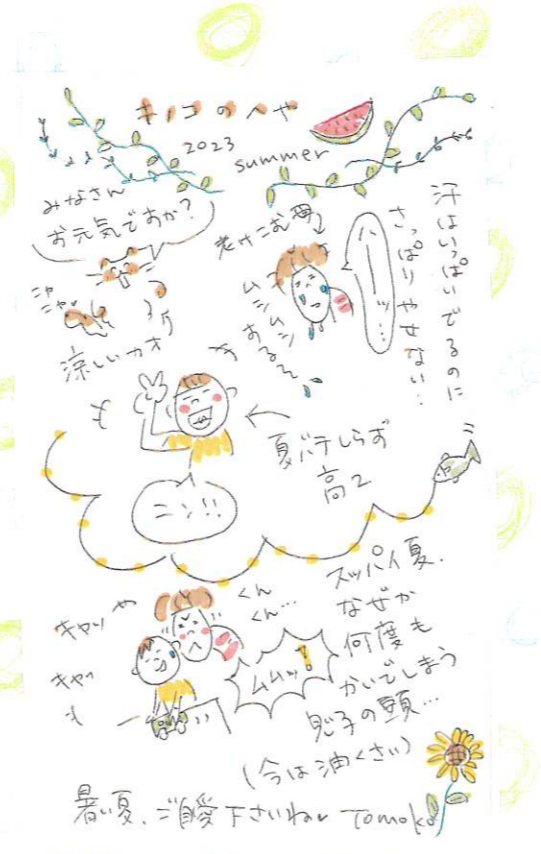 キノコのへや
2023
summer
みなさん
お元気ですか?
ニャ
ニャッ
涼しいカオ
老けこむ母
ムシムシ
するぅ
ハーーッ…
汗はいっぱいでるのに
さっぱりやせない…
ニン!!
夏バテしらず
高2
キャッ
キャッ
くん
くん…
ムムッ!
スッパイ夏、
なぜか
何度も
かいでしまう
息子の頭…
(今は油くさい)
暑い夏、ご自愛下さいね
Tomoko